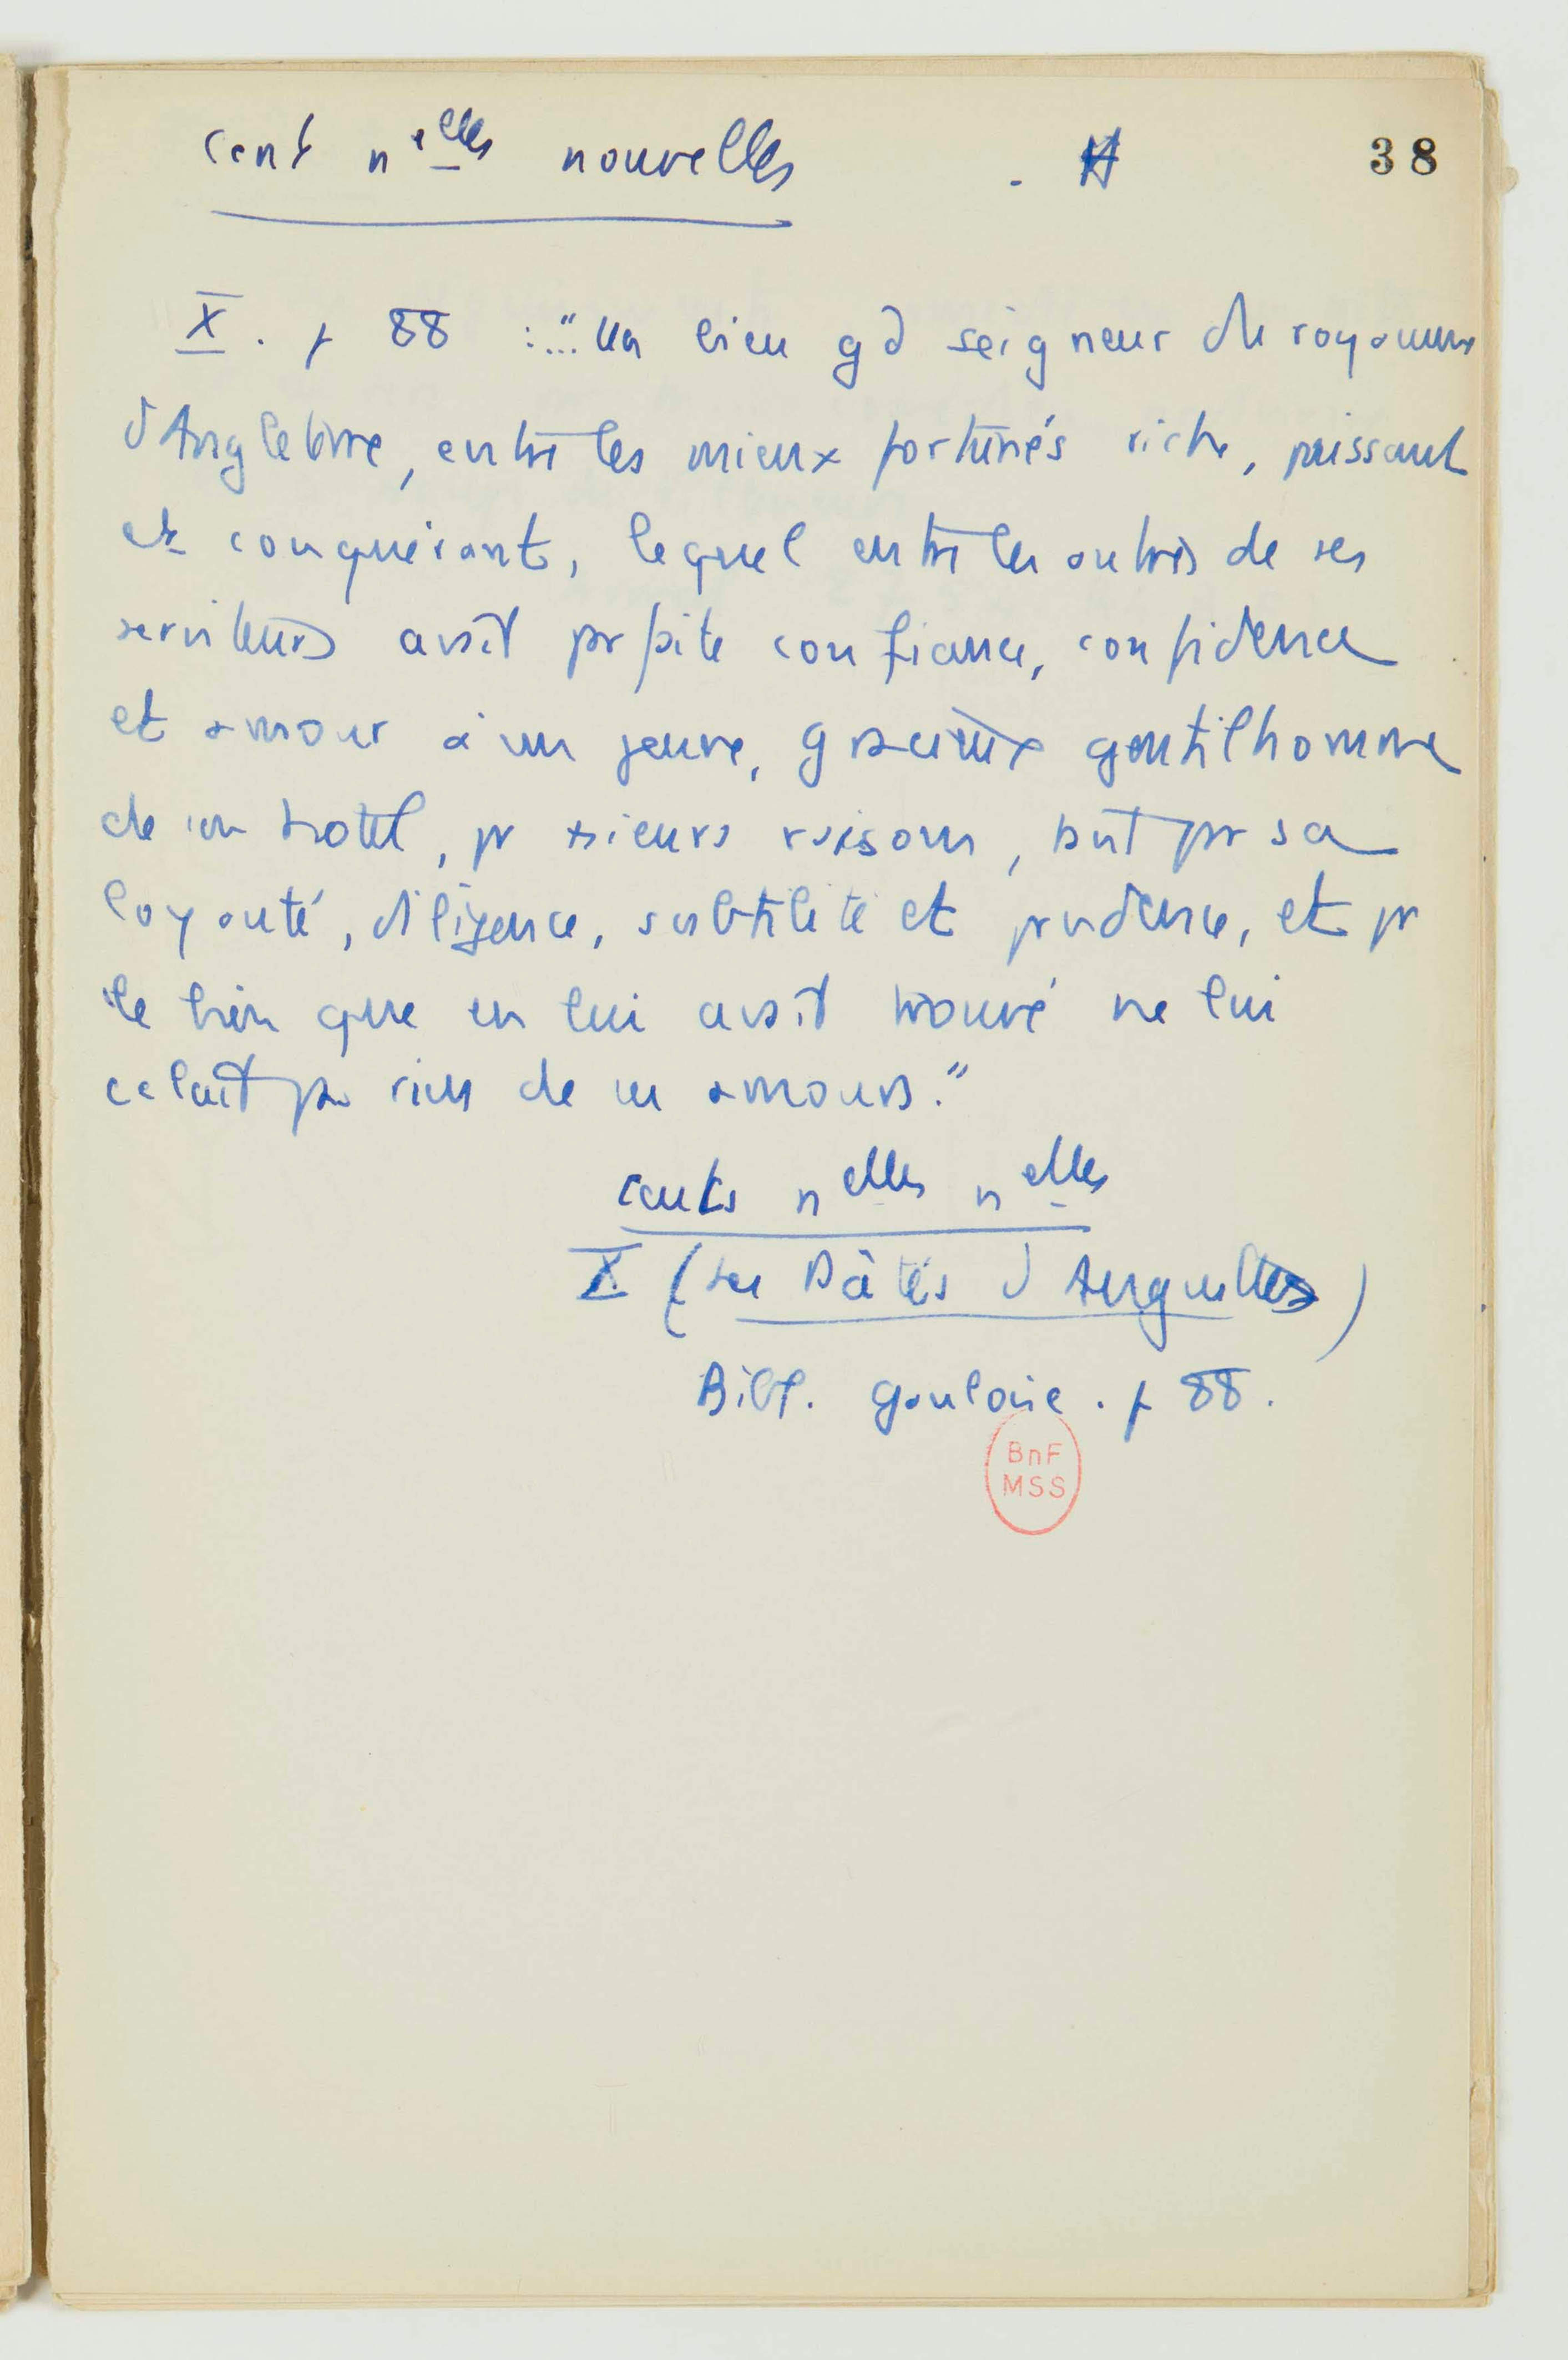 Cent n^elles nouvelles
38
X. p 88 : ..." Un bien gd seigneur du royaume
d'Angleterre, entre les mieux fortunés riche, puissant
et conquérant, lequel entre les autres de ses
serviteurs avait parfaite confiance, confidence
et amour à un jeune, gracieux gentilhomme
de son hotel, pr sieurs raisons, tant pr sa
loyauté, diligence, subtilité et prudence, et pr
le bien que en lui avait trouvé ne lui
celait pas rien de ses amours."
Cents n^elles n^elles
X (Les Pâtés d'Anguilles)
Bibl. gauloise . p 88.
BnF
MSS